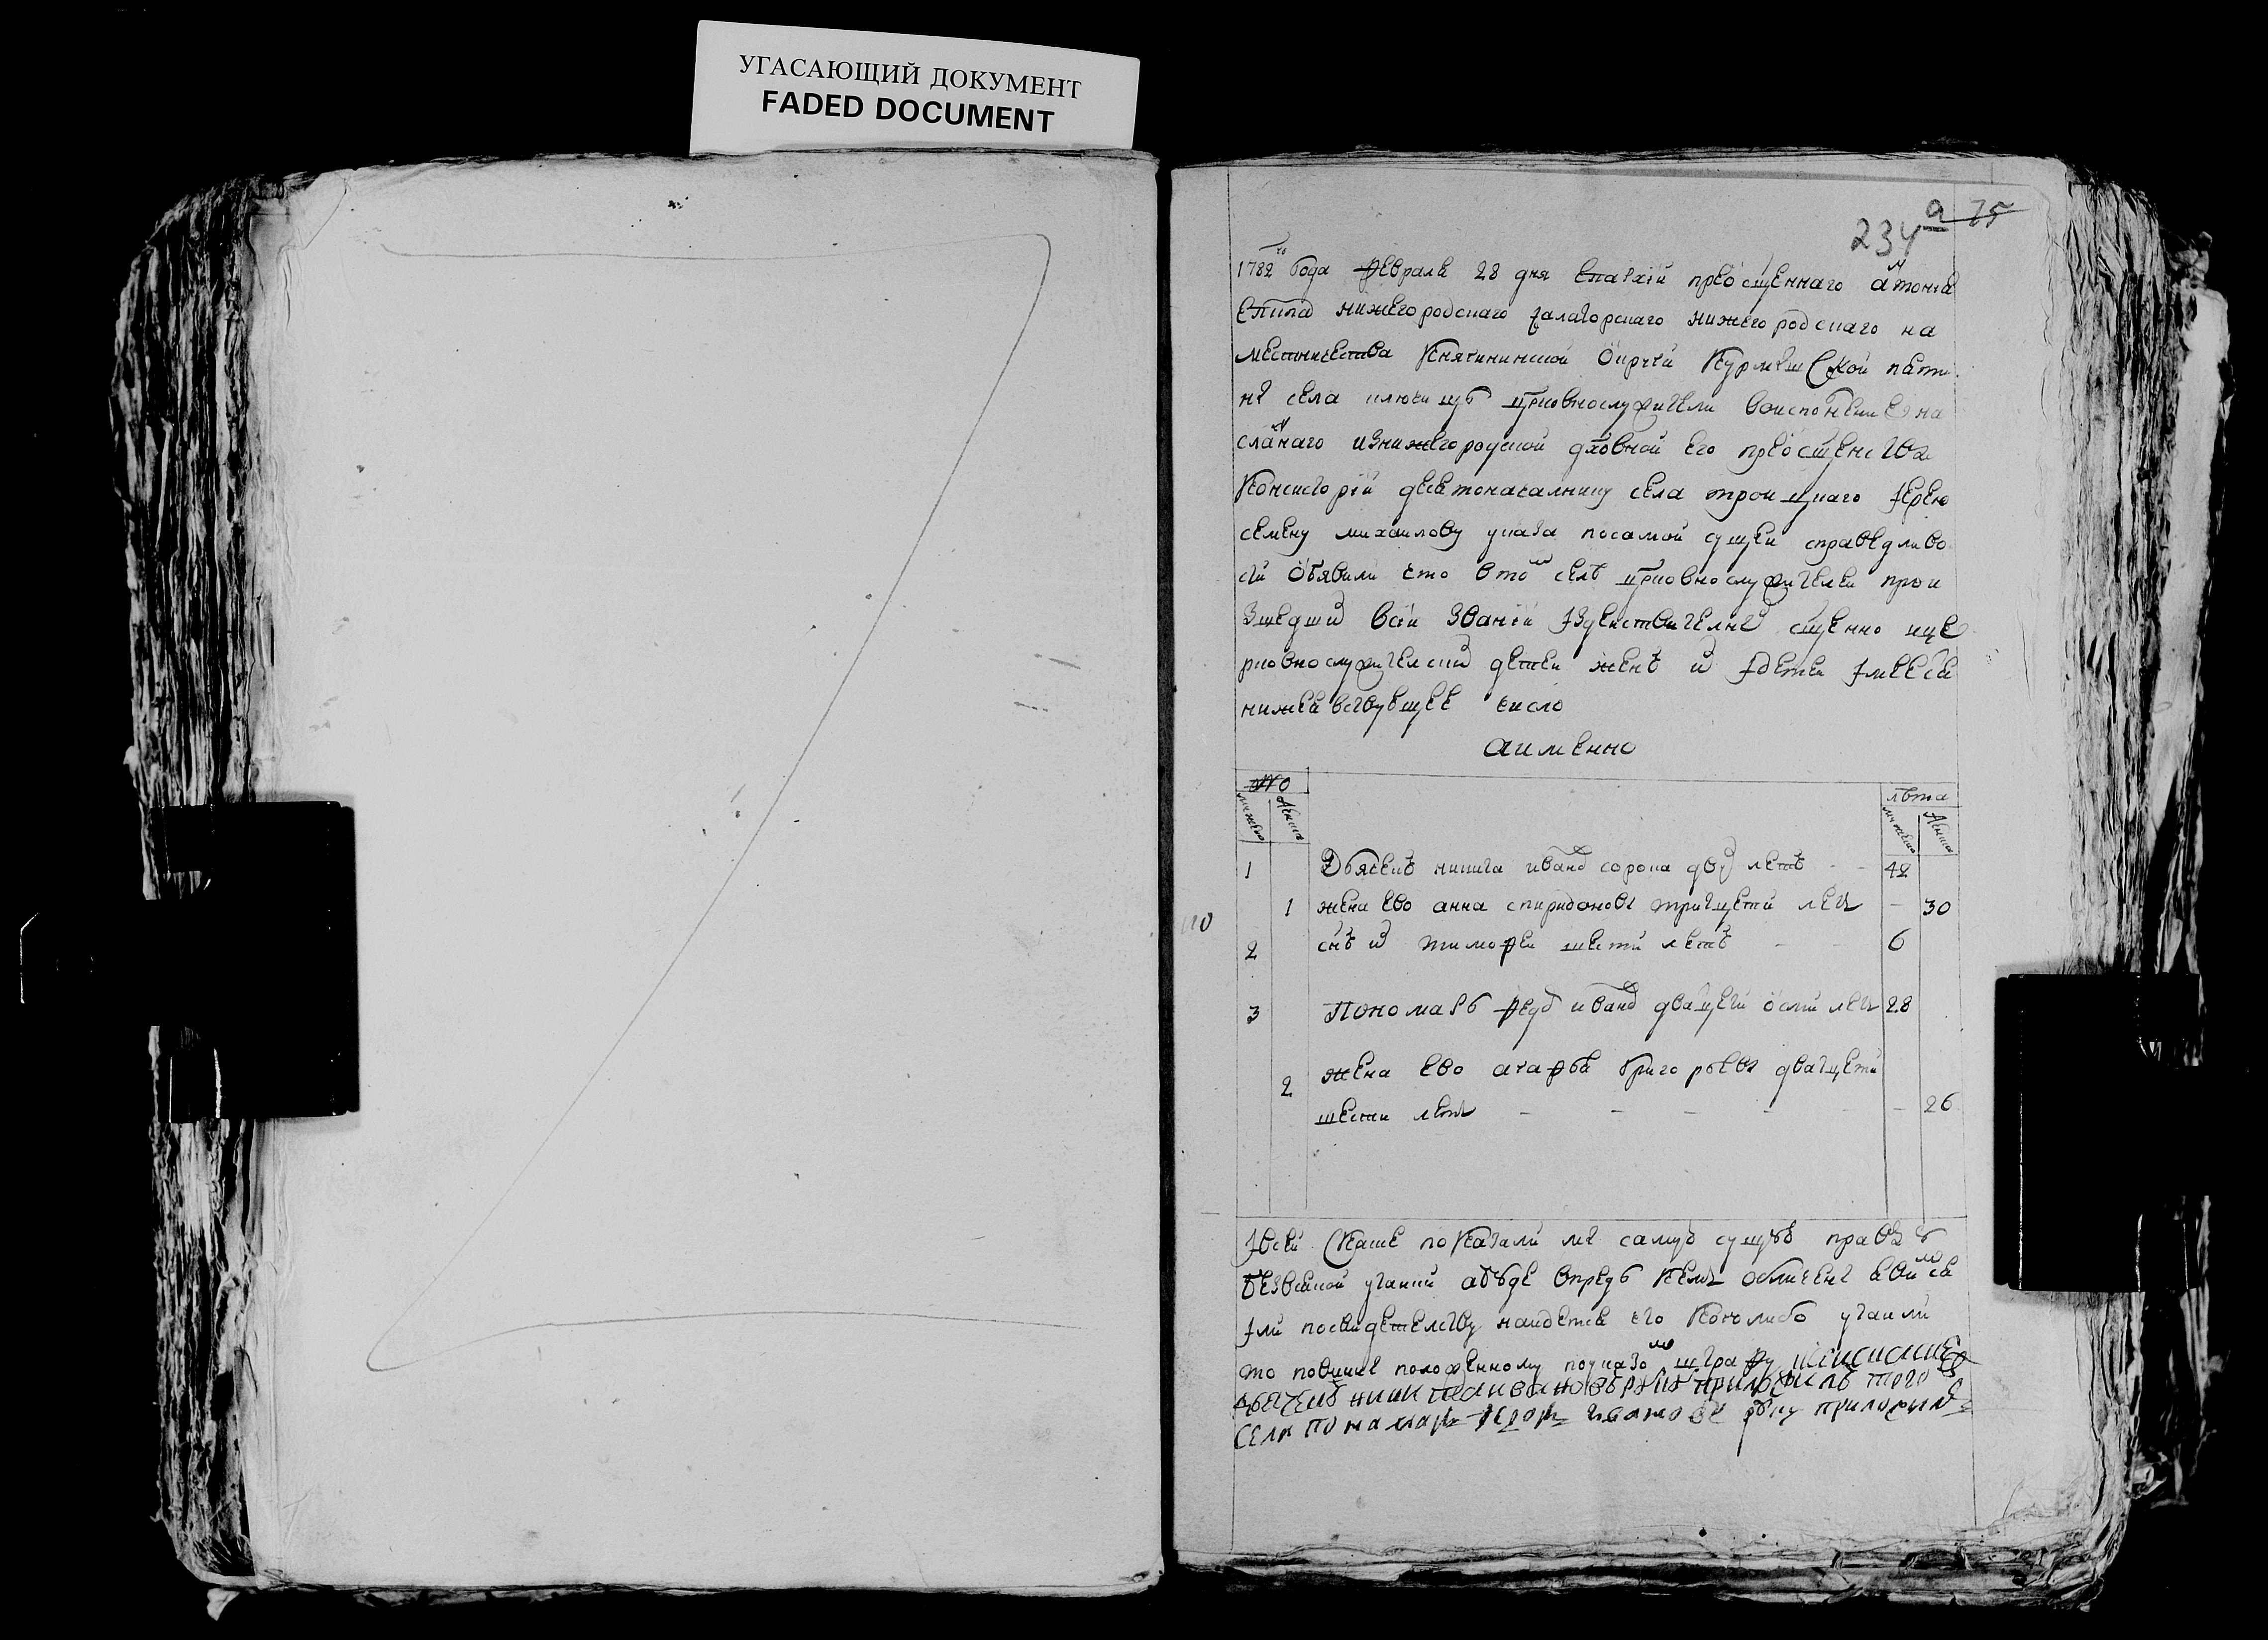 УГАСАЮЩИЙ ДОКУМЕНТ
FADED DOCUMENT
234 а 75
1782го года февраля 28 дня епархiи преосщеннаго антонiя
епiпа нижегородскаго и алаторскаго нижегородскаго на
местничества княгининской округи курмышской
села ключищъ црковнослужители воисполнение на
сланнаго изнижегородской дховной его преосщенства
консисторiи десятоначалнику села троицкаго иерею
семену михаилову указа посамой сущей справедливо
сти обявили что втом селе црковнослужителей прои
зшедших всiи званiи издействителне сщенно ице
рковнослужителских детей жен и их идетей имеется
нижеявствующее число
аименно
№
мужеска
женска
лета
мужеска
женска
1 Дьячекъ никита иванов сорока дву летъ 42
1 жена ево анна спиридонова тритцети летъ - 30
2 снъ их тимофеи шести летъ - - 6
3 Пономарь федор иванов двацети осми летъ 28
2 жена ево агафья григорьева дватцети
шести летъ - - - - - - 26
ивсей скаске показали мы самую сущую правду
безвсякой утайки абуде впредь кем обличены явимся
или посвидетелству найдется что коголибо утаили
то повинны положенному поуказом штрафу
дьячекъ никита ивановъ руку приложилъ того ж
села понамарь федор иванов руку приложилъ